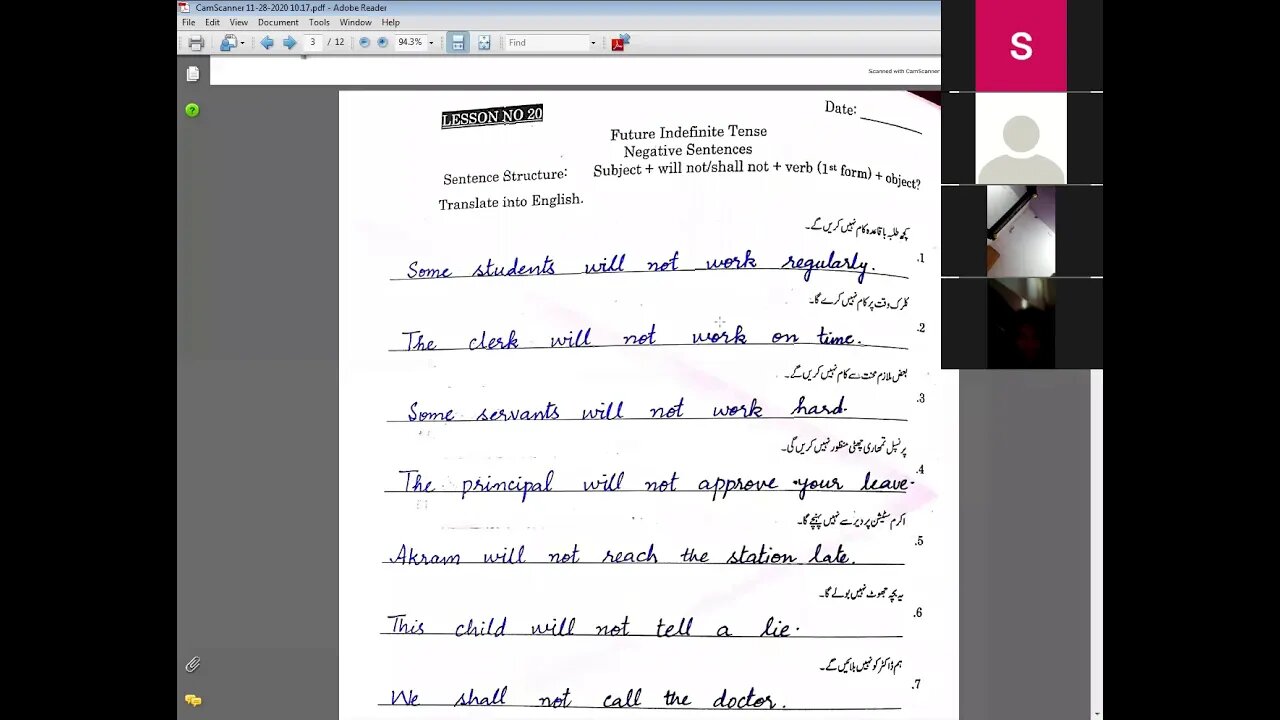 CamScanner 11-28-2020 10.17.pdf - Adobe Reader
File Edit View Document Tools Window Help
3 / 12 94.3% Find
Scanned with CamScanner
S
LESSON NO 20
Date:
Future Indefinite Tense
Negative Sentences
Sentence Structure: Subject + will not/shall not + verb (1st form) + object?
Translate into English.
کچھ طلبہ باقاعدہ کام نہیں کریں گے۔
.1
Some students will not work regularly.
کلرک وقت پر کام نہیں کرے گا۔
.2
The clerk will not work on time.
بعض ملازم محنت سے کام نہیں کریں گے۔
.3
Some servants will not work hard.
پرنسپل تمھاری چھٹی منظور نہیں کریں گی۔
.4
The principal will not approve your leave.
اکرم سٹیشن پر دیر سے نہیں پہنچے گا۔
.5
Akram will not reach the station late.
یہ بچہ جھوٹ نہیں بولے گا۔
.6
This child will not tell a lie.
ہم ڈاکٹر کو نہیں بلائیں گے۔
.7
We shall not call the doctor.